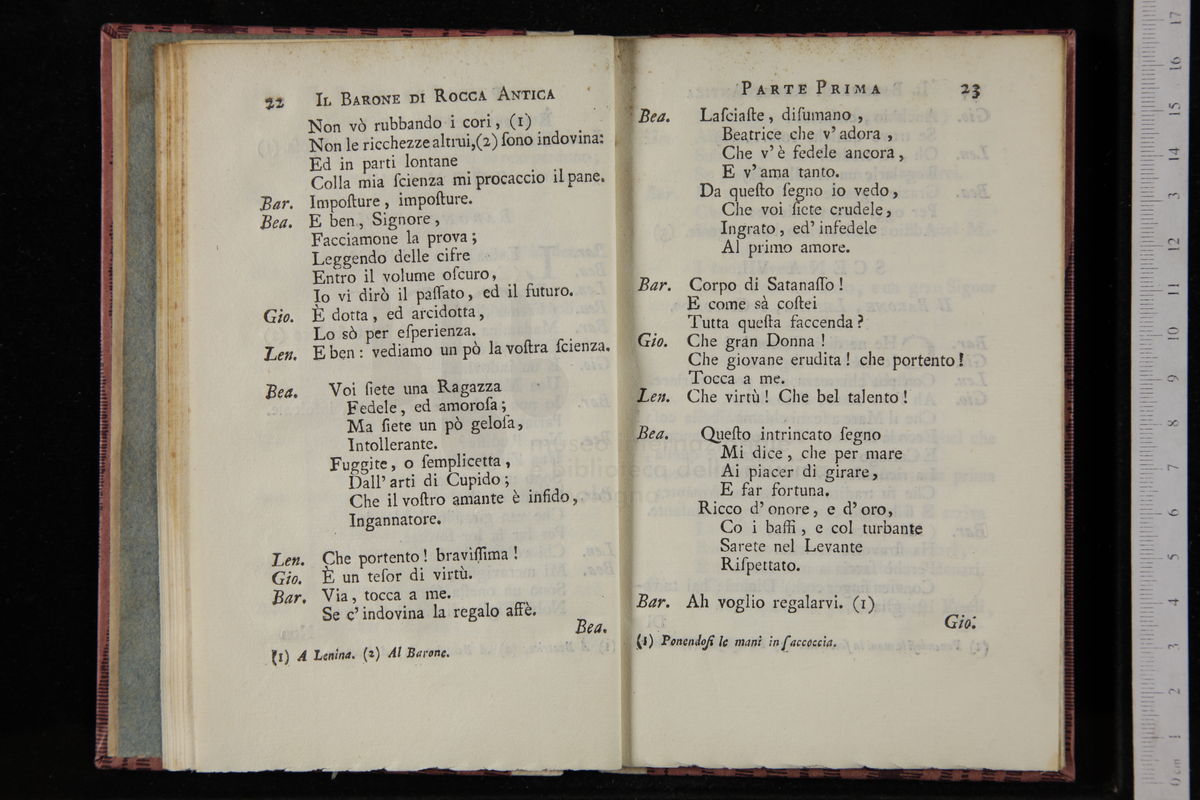 22 IL BARONE DI ROCCA ANTICA
Non vò rubbando i cori, (1)
Non le ricchezze altrui,(2) ſono indovina:
Ed in parti lontane
Colla mia ſcienza mi procaccio il pane.
Bar. Impoſture, impoſture.
Bea. E ben, Signore,
Facciamone la prova;
Leggendo delle cifre
Entro il volume oſcuro,
Io vi dirò il paſſato, ed il futuro.
Gio. È dotta, ed arcidotta,
Lo sò per eſperienza.
Len. E ben: vediamo un pò la voſtra ſcienza.
Bea. Voi ſiete una Ragazza
Fedele, ed amoroſa;
Ma ſiete un pò geloſa,
Intollerante.
Fuggite, o ſemplicetta,
Dall' arti di Cupido;
Che il voſtro amante è infido,
Ingannatore.
Len. Che portento! braviſſima!
Gio. È un teſor di virtù.
Bar. Via, tocca a me.
Se c' indovina la regalo affè.
Bea.
(1) A Lenina. (2) Al Barone.
PARTE PRIMA 23
Bea. Laſciaſte, diſumano,
Beatrice che v' adora,
Che v' è fedele ancora,
E v' ama tanto.
Da queſto ſegno io vedo,
Che voi ſiete crudele,
Ingrato, ed' infedele
Al primo amore.
Bar. Corpo di Satanaſſo!
E come sà coſtei
Tutta queſta faccenda?
Gio. Che gran Donna!
Che giovane erudita! che portento!
Tocca a me.
Len. Che virtù! Che bel talento!
Bea. Queſto intrincato ſegno
Mi dice, che per mare
Ai piacer di girare,
E far fortuna.
Ricco d' onore, e d' oro,
Co i baffi, e col turbante
Sarete nel Levante
Riſpettato.
Bar. Ah voglio regalarvi. (1)
Gio:
(1) Ponendoſi le mani in ſaccoccia.